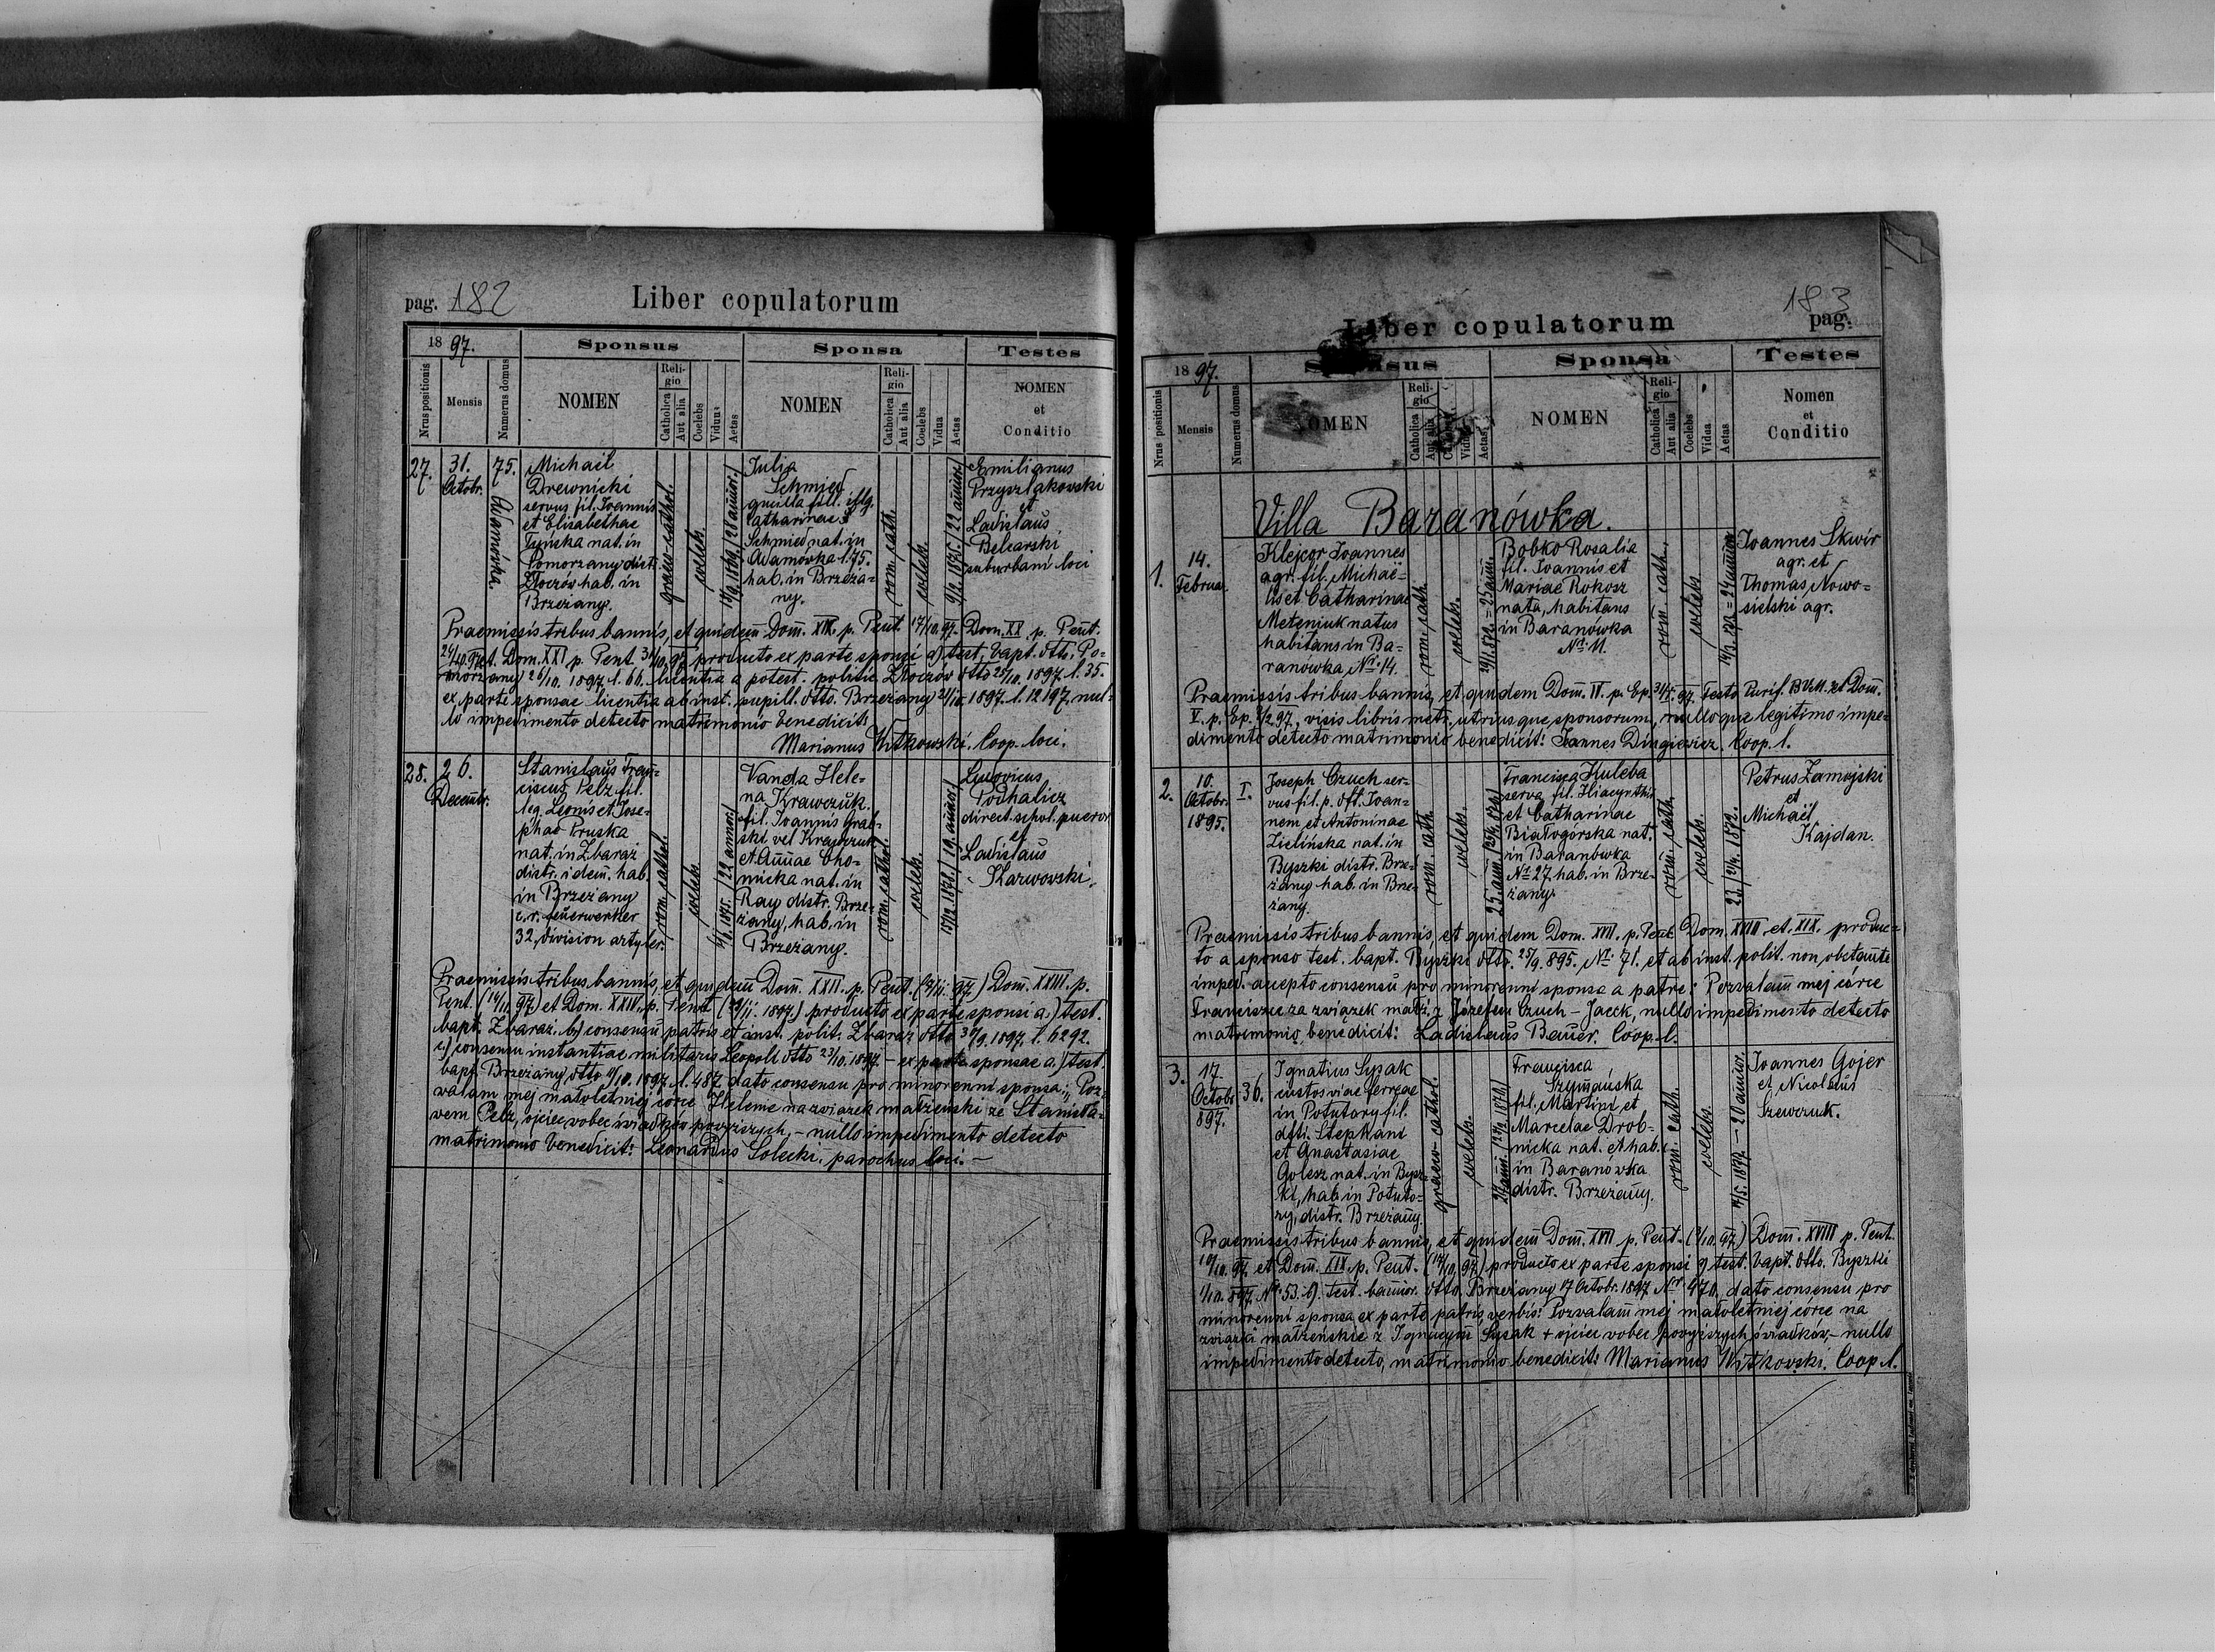 pag. 182
Liber copulatorum
1897.
Sponsus
Sponsa
Testes
Nrus positionis
Mensis
Numerus domus
NOMEN
Reli-
gio
Catholica
Aut alia
Coelebs
Viduus
Aetas
NOMEN
Reli-
gio
Catholica
Aut alia
Coelebs
Vidua
Aetas
NOMEN
et
Conditio
27.
31.
Octobr.
75.
Adamówka.
Michael
Drewnicki
servus fil. Joannis
et Elisabethae
nat. in
Pomorzany distr.
Złoczów hab. in
Brzeżany.
graeco-cathol.
coelebs.
28 annor.
Julia
Schmied
fill. illg.
Catharinae
Schmied nat. in
Adamówka l. 75.
hab. in Brzeża-
ny.
rom. cath.
coelebs.
22 annor.
Emilianus
Przyszlakowski
et
Ladislaus
Belcarski
suburbani loci
Praemissis tribus bannis, et quidem Dom. XIX. p. Pent. 17/10.97. Dom. XX p. Pent.
24/10.97 et. Dom. XXI p. Pent. 31/10.97 producto ex parte sponsi a) test. bapt. dtto. Po-
morzany 26/10. 1897 l. 66. licentia a potest. politic. Złoczów dtto 25/10. 1897 l. 35.
ex parte sponsae licentia ab inst. pupill. dtto. Brzeżany 21/10. 1897. l. 12197, nul-
lo impedimento detecto matrimonio benedicit:
Marianus Witkowski. Coop. loci.
28.
26.
Decembr.
Stanislaus Fran-
ciscus Pelz fil.
leg. Leonis et Jose-
phae Pruska
nat. in Zbaraż
distr. idem. hab.
in Brzeżany
c. r. feuerwerker
32, division artyler.
rom. cathol.
coelebs.
22 annor.
Vanda Hele-
na Krawczuk.
fil. Joannis Grab-
ski vel Krawczuk
et Annae Cho-
micka nat. in
Ray distr. Brze-
żany, hab. in
Brzeżany.
rom. cathol.
coelebs.
19. annor.
Ludovicus
Podhalicz
direct. schol. pueror
et
Ladislaus
Karwovski.
Praemissis tribus bannis, et quidem Dom. XXII. p. Pent. (7/11. 97) Dom. XXIII. p.
Pent. (14/11. 97) et Dom. XXIV. p. Pent. (21/11. 1897.) producto ex parte sponsi a.) test.
bapt. Zbaraż. b) consensu patris et inst. polit. Zbaraż dtto 30/9. 1897. l. 6292.
c) consensu instantiae militaris Leopoli dtto 23/10. 1897. - ex parte sponsae a.) test.
bapt. Brzeżany dtto 1897. l. 487 dato consensu pro minorenni sponsa: „Poz-
walam mej małoletniej córce Helenie na związek małżeński ze Stanisła-
wem Pelz, ojciec wobec świadków powyższych, - nullo impedimento detecto
matrimonio benedicit: Leonardus Solecki. parochus loci. -
183
pag.
Liber copulatorum
1897.
Sponsus
Sponsa
Testes
Nrus positionis
Mensis
Numerus domus
NOMEN
Reli-
gio
Catholica
Aut alia
Viduus
Aetas
NOMEN
Reli-
gio
Catholica
Aut alia
Coelebs
Vidua
Aetas
Nomen
et
Conditio
Villa Baranówka.
1.
14.
Februar.
Klejcor Joannes
agr. fil. Michaë-
lis et Catharinae
Meteniuk natus
habitans in Ba-
ranówka, No. 14.
rom. cath.
coelebs.
25 ann.
Bobko Rosalia
fil. Joannis et
Mariae Rokosz
nata, habitans
in Baranówka
No. 11.
rom. cath.
coelebs.
24 annor.
Joannes Skwir
agr. et
Thomas Nowo-
sielski agr.
Praemissis tribus bannis, et quidem Dom. IV. p. Ep. 31/1. 97. Festo Purif. B.V.M. et Dom.
V. p. Ep. 7/2 97, visis libris metr. utriusque sponsorum, nulloque legitimo impe-
dimento detecto matrimonio benedicit: Joannes Dingiewicz. Coop. l.
2.
10.
Octobr.
1895.
I.
Joseph Czuch ser-
vus fil. p. dft. Joan-
nem et Antoninae
Zielińska nat. in
Byszki distr. Brze-
żany hab. in Brze-
żany.
rom. cath.
coelebs.
25. ann.
Francisca Huleba
serva fil. Hiacynthi
et Catharinae
Białogórska nat.
in Baranówka
No. 27 hab. in Brze-
żany.
rom. cath.
coelebs.
23.
Petrus Zamojski
et
Michaël
Kajdan.
Praemissis tribus bannis, et quidem Dom. XVII. p. Pent. Dom. XVIII et. XIX. produc-
to a sponso test. bapt. Byszki dtto. 25/9. 895. No. 71. et ab inst. polit. non obstante
imped. accepto consensu pro minorenni sponsa a patre: Pozwalam mej córce
Franciszce za związek małż. z Józefem Czuch - Jacek, nullo impedimento detecto
matrimonio benedicit: Ladislaus Bauer. Coop. l.
3.
17.
Octobr
897.
36.
Ignatius Lysak
custos viae ferreae
in Potutory fil.
dfti. Stephani
et Anastasiae
Golesz nat. in Bysz-
ki, hab. in Potuto-
ry, distr. Brzeżany.
graeco cathol.
coelebs.
Francisca
Szymańska
fil. Martini et
Marcelae Drob-
nicka nat. et hab.
in Baranówka
distr. Brzeżany.
rom. cath.
coelebs.
20 annor.
Joannes Gojer
et Nicolaus
Szewczuk.
Praemissis tribus bannis, et quidem Dom. XVII p. Pent. (3/10. 97) Dom. XVIII p. Pent.
10/10. 97. et Dom. XIX. p. Pent. (17/10. 97) producto ex parte sponsi a) test. bapt. dtto. Byszki
1/10. 897. No. 53. b). test. bannor. dtto. Brzeżany 17 Octobr. 1897 Nr. 470, dato consensu pro
minorenni sponsa ex parte patris verbis: Pozwalam mej małoletniej córce na
związki małżeńskie z Ignacym Lysak + ojciec wobec powyższych świadków, - nullo
impedimento detecto, matrimonio benedicit: Marianus Witkowski. Coop. l.